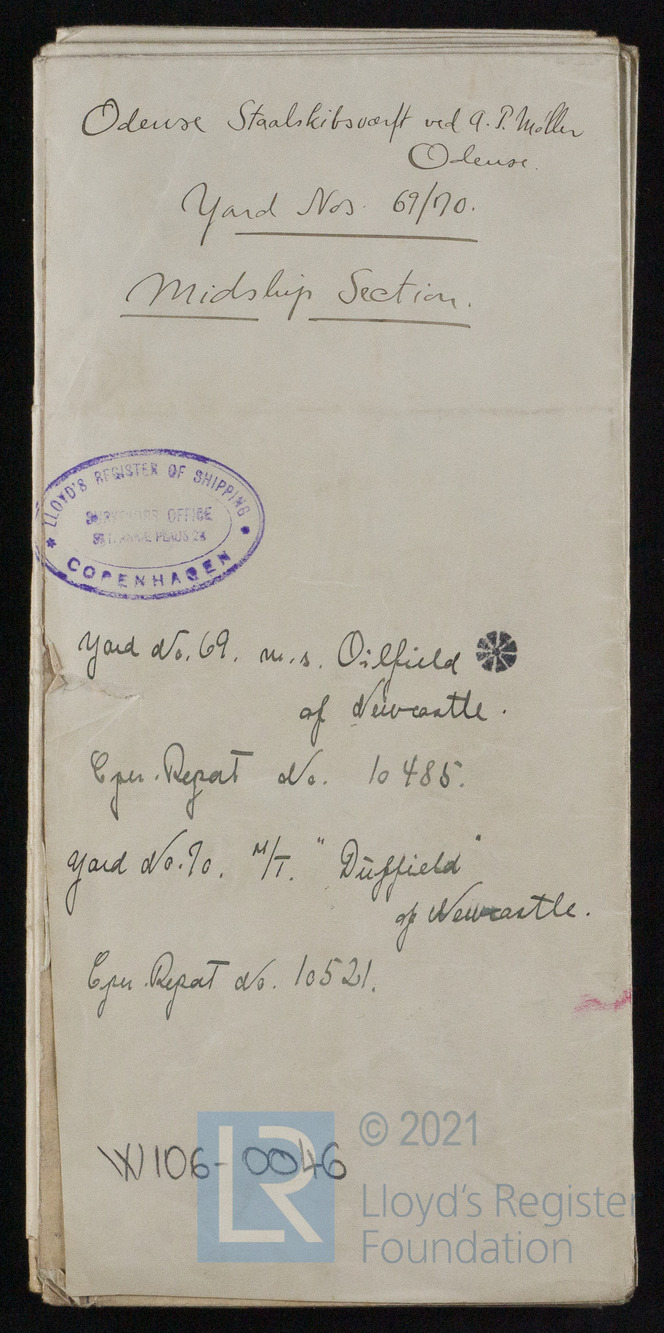 Odense Staalskibsværft ved A. P. Möller
Odense.
Yard Nos. 69/70.
Midship Section.
LLOYD'S REGISTER OF SHIPPING
SURVEYORS OFFICE
SCT. ANNÆ PLADS 24
COPENHAGEN
Yard No. 69. m.s. Oilfield
of Newcastle.
Cpn. Report No. 10485.
Yard No. 70. M/T. "Duffield"
of Newcastle.
Cpn. Report No. 10521.
W106-0046
LR
© 2021
Lloyd's Register
Foundation